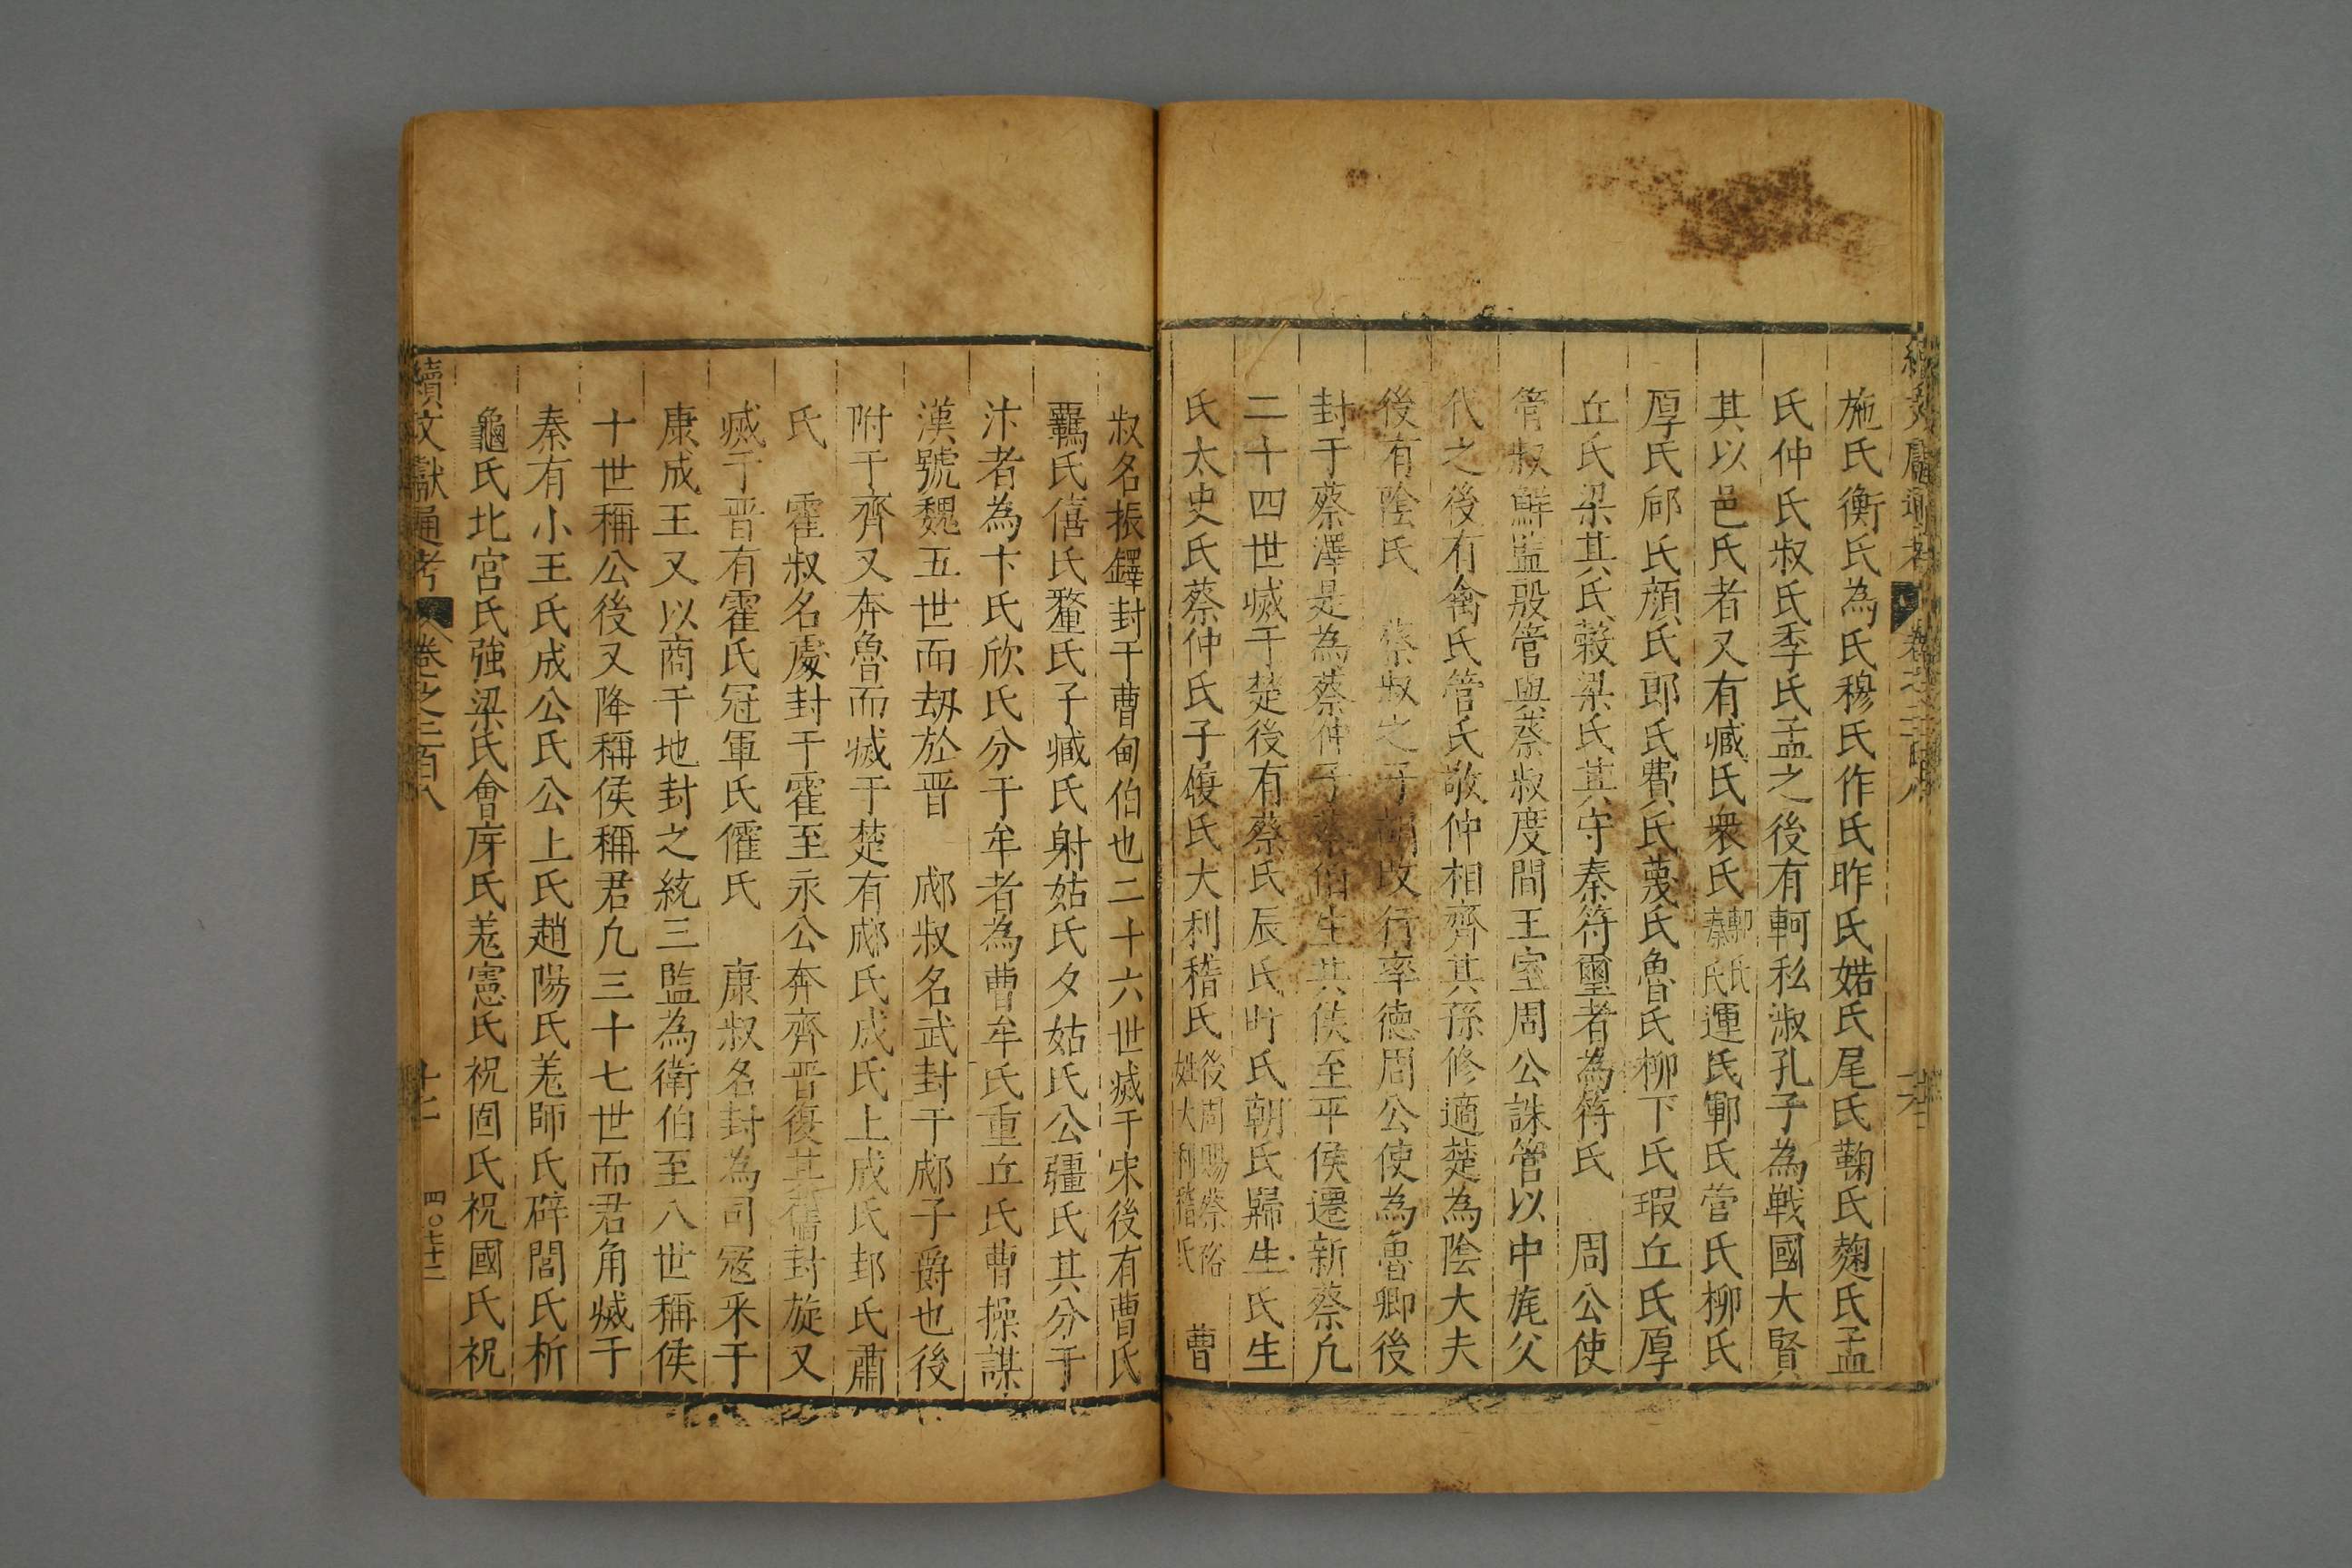 施氏衡氏為氏穆氏作氏昨氏婼氏尾氏鞠氏麹氏孟
氏仲氏叔氏季氏孟之後有軻私淑孔子為戰國大賢
其以邑氏者又有臧氏衆氏鄆氏秦氏運氏鄆氏營氏柳氏
厚氏郈氏顏氏郎氏費氏蔑氏魯氏柳下氏瑕丘氏厚
丘氏梁其氏穀梁氏其守秦符璽者為符氏　周公使
管叔鮮監殷管與蔡叔度間王室周公誅管以中旄父
代之後有禽氏管氏敬仲相齊其孫修適楚為陰大夫
後有陰氏　蔡叔之子胡改行率德周公使為魯卿後
封于蔡澤是為蔡仲子蔡伯生其侯至平侯遷新蔡凢
二十四世滅于楚後有蔡氏辰氏盯氏朝氏歸生氏生
氏太史氏蔡仲氏子履氏大利稽氏後周賜蔡祐姓大利稽氏　曹
叔名振鐸封于曹甸伯也二十六世滅于宋後有曹氏
羈氏僖氏鼇氏子臧氏射姑氏夕姑氏公彊氏其分于
汴者為卞氏欣氏分于牟者為曹牟氏重丘氏曹操謀
漢號魏五世而刼於晋　郕叔名武封于郕子爵也後
附于齊又奔魯而滅于楚有郕氏成氏上成氏邽氏肅
氏　霍叔名處封于霍至永公奔齊晋復其舊封旋又
滅于晋有霍氏冠軍氏㒞氏　康叔名封為司寇采于
康成王又以商于地封之統三監為衛伯至八世稱侯
十世稱公後又降稱侯稱君凢三十七世而君角滅于
秦有小王氏成公氏公上氏趙陽氏羌師氏辟閭氏析
龜氏北宮氏強梁氏會庌氏羌憲氏祝固氏祝國氏祝
續文獻通考　卷之二百八　十二　四〇七十二